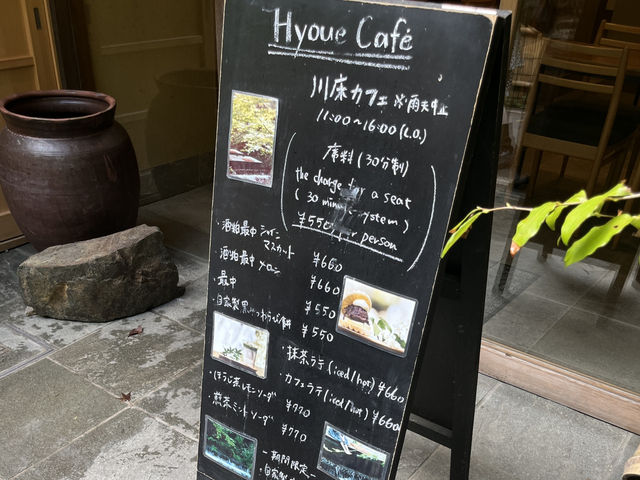 Hyoue Café
川床カフェ ※雨天中止
11:00~16:00(L.O.)
席料(30分制)
the charge for a seat
(30 minute system)
¥550 per person
・酒粕最中 シャインマスカット ¥660
酒粕最中 メロン ¥660
・最中 ¥550
・自家製黒みつわらび餅 ¥550
・抹茶ラテ(iced/hot) ¥660
・カフェラテ(iced/hot) ¥660
・ほうじ茶レモンソーダ ¥770
・煎茶ミントソーダ ¥770
-期間限定-
・自家製